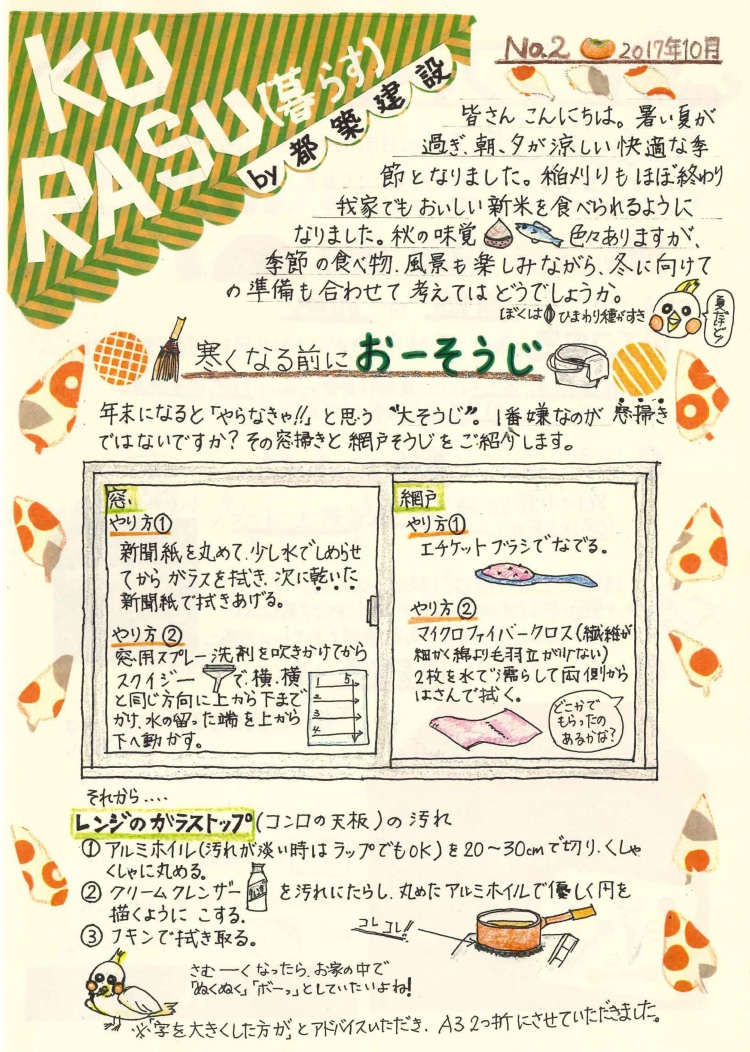 KU
RASU(暮らす)
by 都築建設
No.2 2017年10月
皆さん こんにちは。暑い夏が
過ぎ、朝、夕が涼しい快適な季
節となりました。稲刈りもほぼ終わり
我家でもおいしい新米を食べられるように
なりました。秋の味覚 色々ありますが、
季節の食べ物、風景も楽しみながら、冬に向けて
の準備も合わせて考えてはどうでしょうか。
ぼくは ひまわり種がすき
夏だけど!
寒くなる前に おーそうじ
年末になると「やらなきゃ!!」と思う “大そうじ”。1番嫌なのが 窓掃き
ではないですか?その窓掃きと網戸そうじをご紹介します。
窓
やり方①
新聞紙を丸めて、少し水でしめらせ
てから ガラスを拭き、次に乾いた
新聞紙で拭きあげる。
やり方②
窓用スプレー洗剤を吹きかけてから
スクイジー で、横、横
と同じ方向に上から下まで
かけ、水の留った端を上から
下へ動かす。
1 5
2
3
4
網戸
やり方①
エチケットブラシでなでる。
やり方②
マイクロファイバークロス(繊維が
細かく綿より毛羽立が少ない)
2枚を水で濡らして両側から
はさんで拭く。
どこかで
もらったの
あるかな?
それから....
レンジのガラストップ(コンロの天板)の汚れ
① アルミホイル(汚れが淡い時はラップでもOK)を20〜30cmで切り、くしゃ
くしゃに丸める。
② クリームクレンザー を汚れにたらし、丸めたアルミホイルで優しく円を
描くように こする。
③ フキンで拭き取る。
コレコレ!!
さむーくなったら、お家の中で
「ぬくぬく」「ボーっ」としていたいよね!
※「字を大きくした方が」とアドバイスいただき、A3 2つ折にさせていただきました。